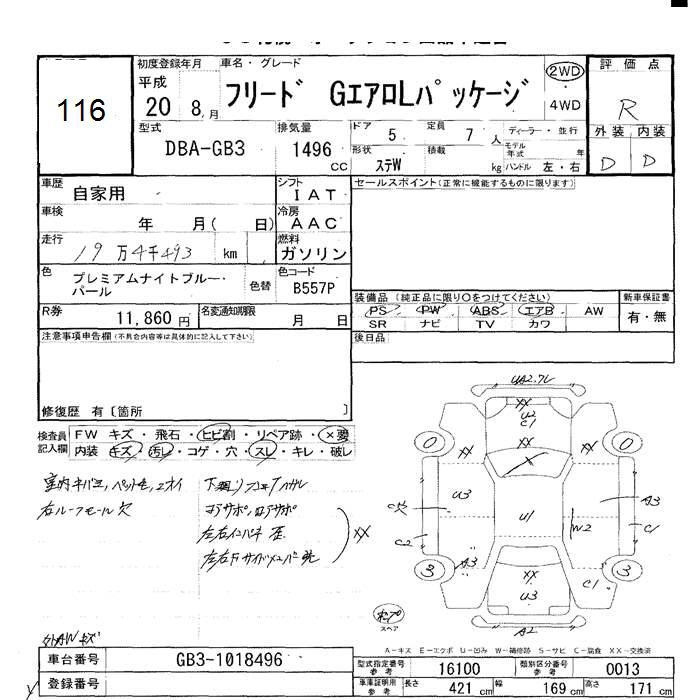 116
初度登録年月 車名・グレード
平成 20 8月 フリード GエアロLパッケージ 2WD 4WD
評価点
R
外装 内装
D D
型式 排気量 ドア 5 定員 7人 ディーラー・並行
DBA-GB3 1496cc 形状 ステW 積載 kg モデル年式 年
ハンドル 左・右
車歴 自家用 シフト IAT
セールスポイント(正常に機能するものに限ります)
車検 年 月( 日) 冷房 AAC
走行 19万4千493 km 燃料 ガソリン
色 プレミアムナイトブルー・パール 色替 色コード B557P
R券 11,860円 名変通知期限 月 日
装備品(純正品に限り○をつけてください) 新車保証書
PS PW ABS エアB AW 有・無
SR ナビ TV カワ
注意事項申告欄(不具合内容等は具体的に記入して下さい)
後日品
修復歴 有〔箇所 〕
検査員記入欄 FW キズ・飛石・ヒビ割・リペア跡・×要
内装 キズ・汚レ・コゲ・穴・スレ・キレ・破レ
右ルーフモール欠
左右インパネ 歪
XX
外AWキズ
XX
U2
C1
XX
XX
XX
X
0
0
U3
U1
A3
W2
C1
C2
A3
3
3
XX
U3
C1
A2
スペア
A-キズ E-エクボ U-凹み W-補修跡 S-サビ C-腐食 XX-交換済
車台番号 GB3-1018496 型式指定番号 参考 16100 類別区分番号 参考 0013
登録番号 車庫証明用 参考 長さ 421cm 幅 169cm 高さ 171cm